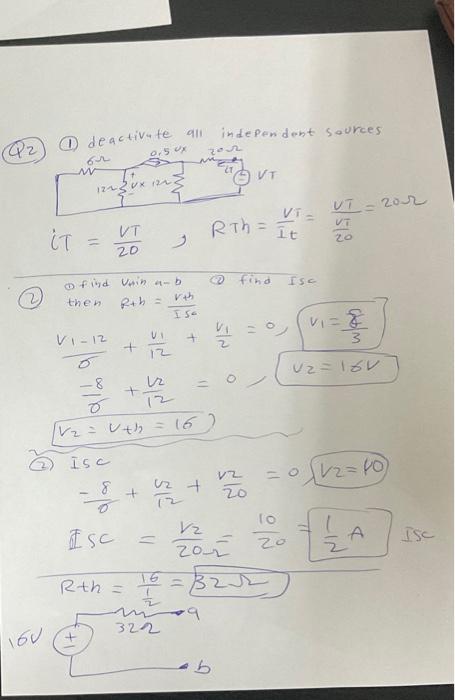 Q2 ① deactivate all independent sources
6Ω 0,5 Vx 20Ω
12Ω Vx 12Ω iT VT
+ -
iT = VT/20 , RTh = VT/It = VT/(VT/20) = 20Ω
② ① find Vth in a-b ② find Isc
then Rth = Vth/Isc
(V1-12)/6 + V1/12 + V1/2 = 0, V1 = 8/3
-8/6 + V2/12 = 0, V2 = 16V
V2 = Vth = 16
② Isc
-8/6 + V2/12 + V2/20 = 0, V2 = 10
Isc = V2/20Ω = 10/20 = 1/2 A Isc
Rth = 16/(1/2) = 32Ω
a
32Ω
16V + -
b